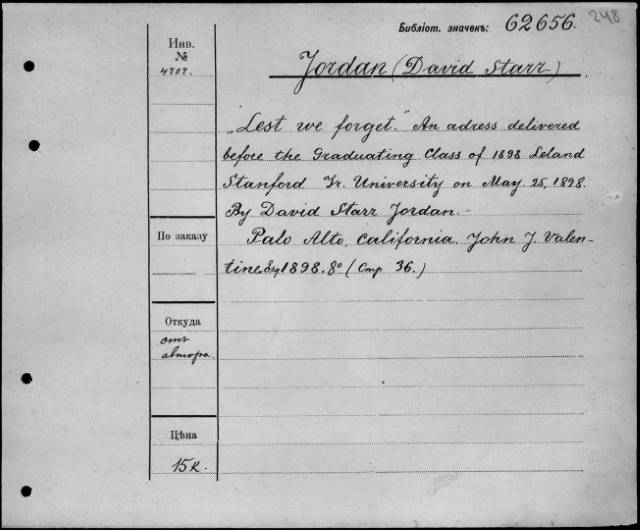 Библіот. значекъ: 62656. 248
Инв.
№
4707.
Jordan (David Starr)
„Lest we forget." An adress delivered
before the Graduating Class of 1898 Leland
Stanford Jr. University on May. 25, 1898.
By David Starr Jordan. -
По заказу
Palo Alto, California. John J. Valen-
tine Esq 1898. 8° (Стр 36.)
Откуда
отъ
автора.
Цѣна
15 к.